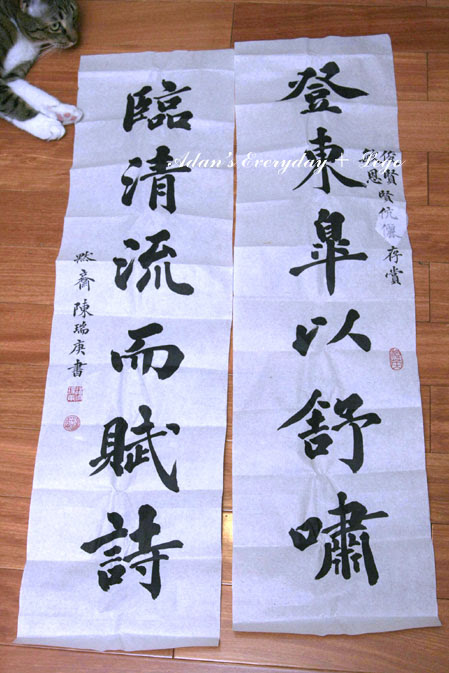 俊賢
恩
賢伉儷存賞
登東皐以舒嘯
臨清流而賦詩
陳瑞庚書
Adan's Everyday +